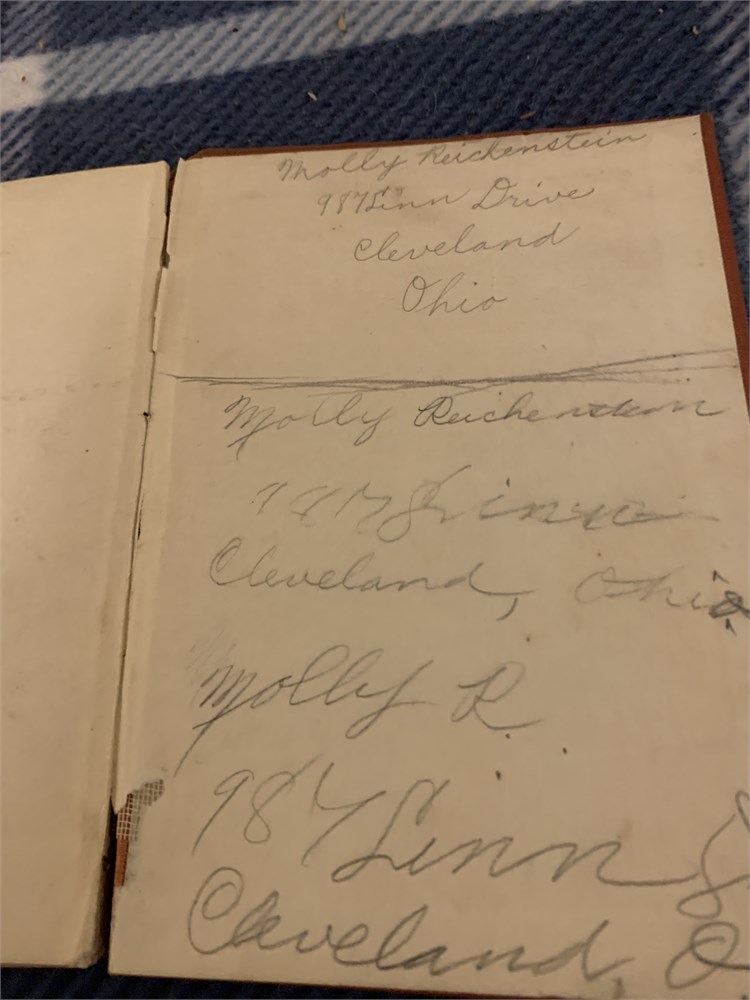 Molly Reichenstein
987 Linn Drive
Cleveland
Ohio
Molly Reichenstein
987 Linn
Cleveland, Ohio
Molly R.
987 Linn
Cleveland, O